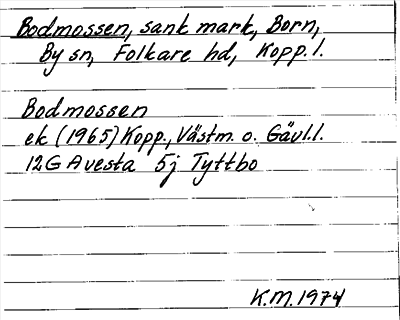 Bodmossen, sank mark, Born,
By sn, Folkare hd, Kopp. l.
Bodmossen
ek (1965) Kopp., Västm. o. Gävl. l.
12G Avesta 5j Tyttbo
K.M. 1974